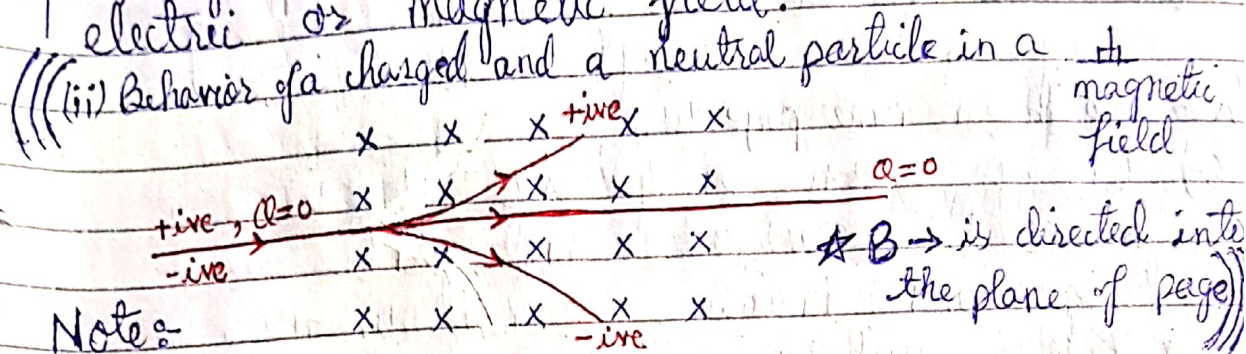 electric or magnetic field.
(((ii) Behavior of a charged and a neutral particle in a
magnetic
field
+ive
x x x x x
x x x x x
Q=0
+ive, Q=0
-ive
x x x x x
☆ B → is directed into
the plane of page)))
x x x x x
-ive
Note: